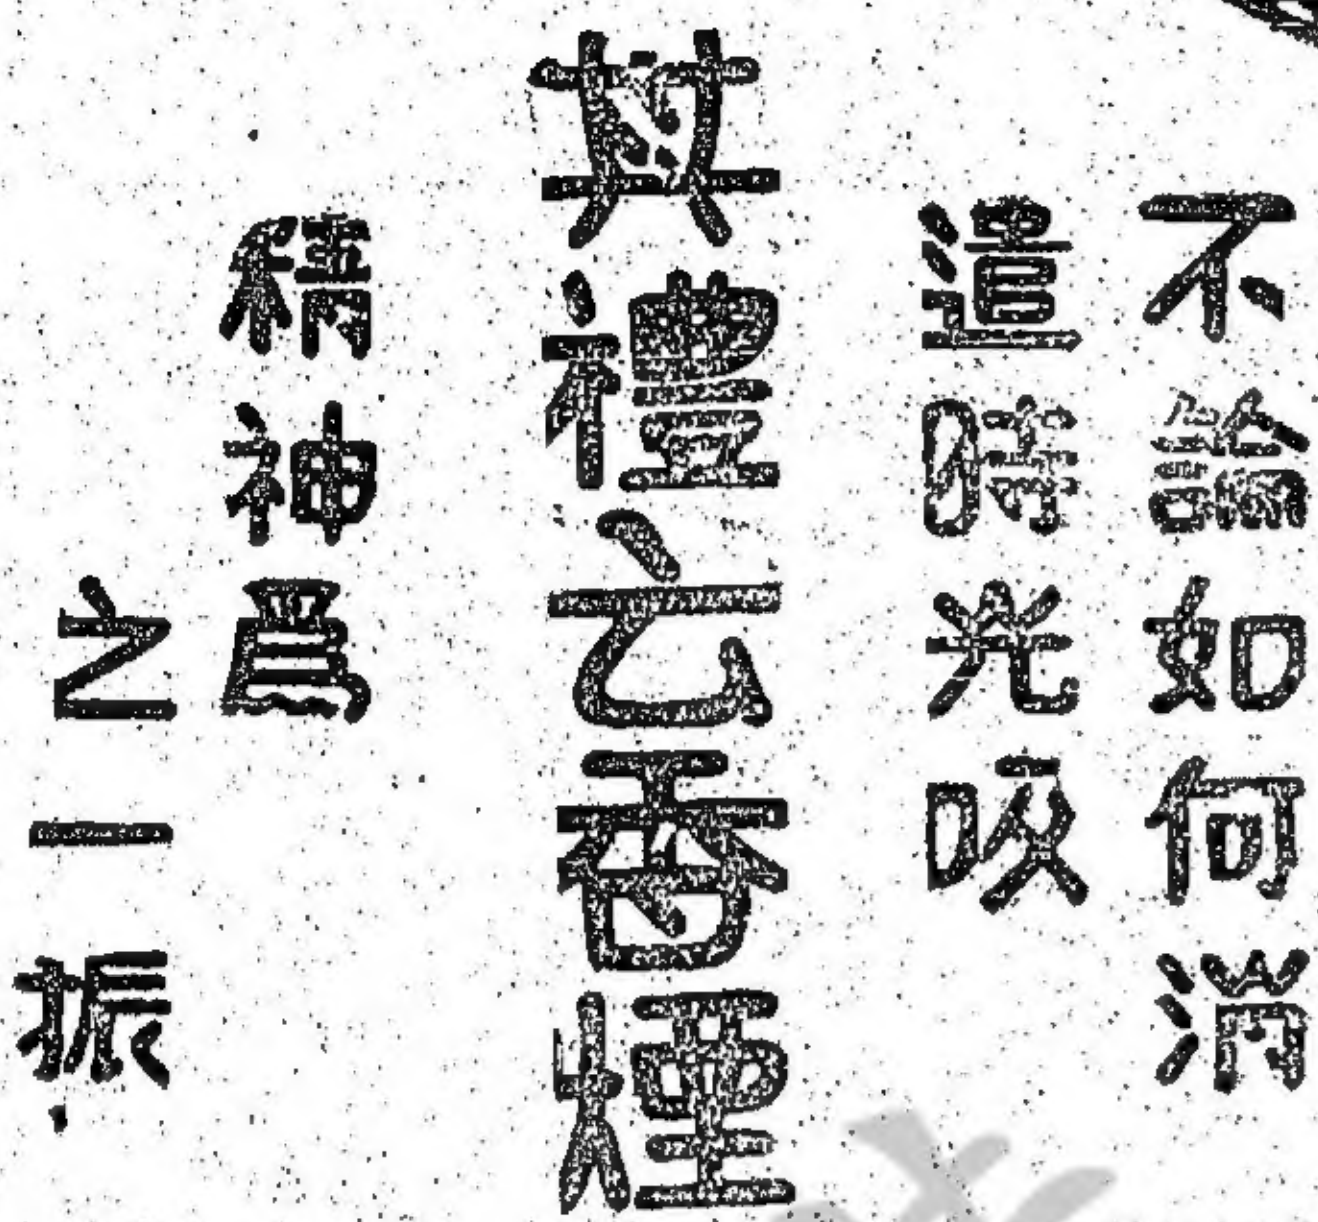 不論如何消
遣時光吸
其禮云香煙
精神爲
之一振